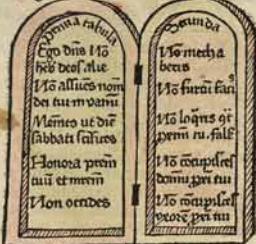 Prima tabula
Ego dn̄s Nō
heb deos alie
Nō assūes nom̄
dei tui in vanū
Mem̄to ut diē
sabbati sc̄ifices
Honora prem̄
tuū et mrem̄
Non occides
Secunda
Nō mecha
beris
Nō furtū faciꝰ
Nō loq̄ris
prim̄ tu. fals̄
Nō cōcupisces
domū pxi tui
Nō cōcupisces
uxorē pxi tui